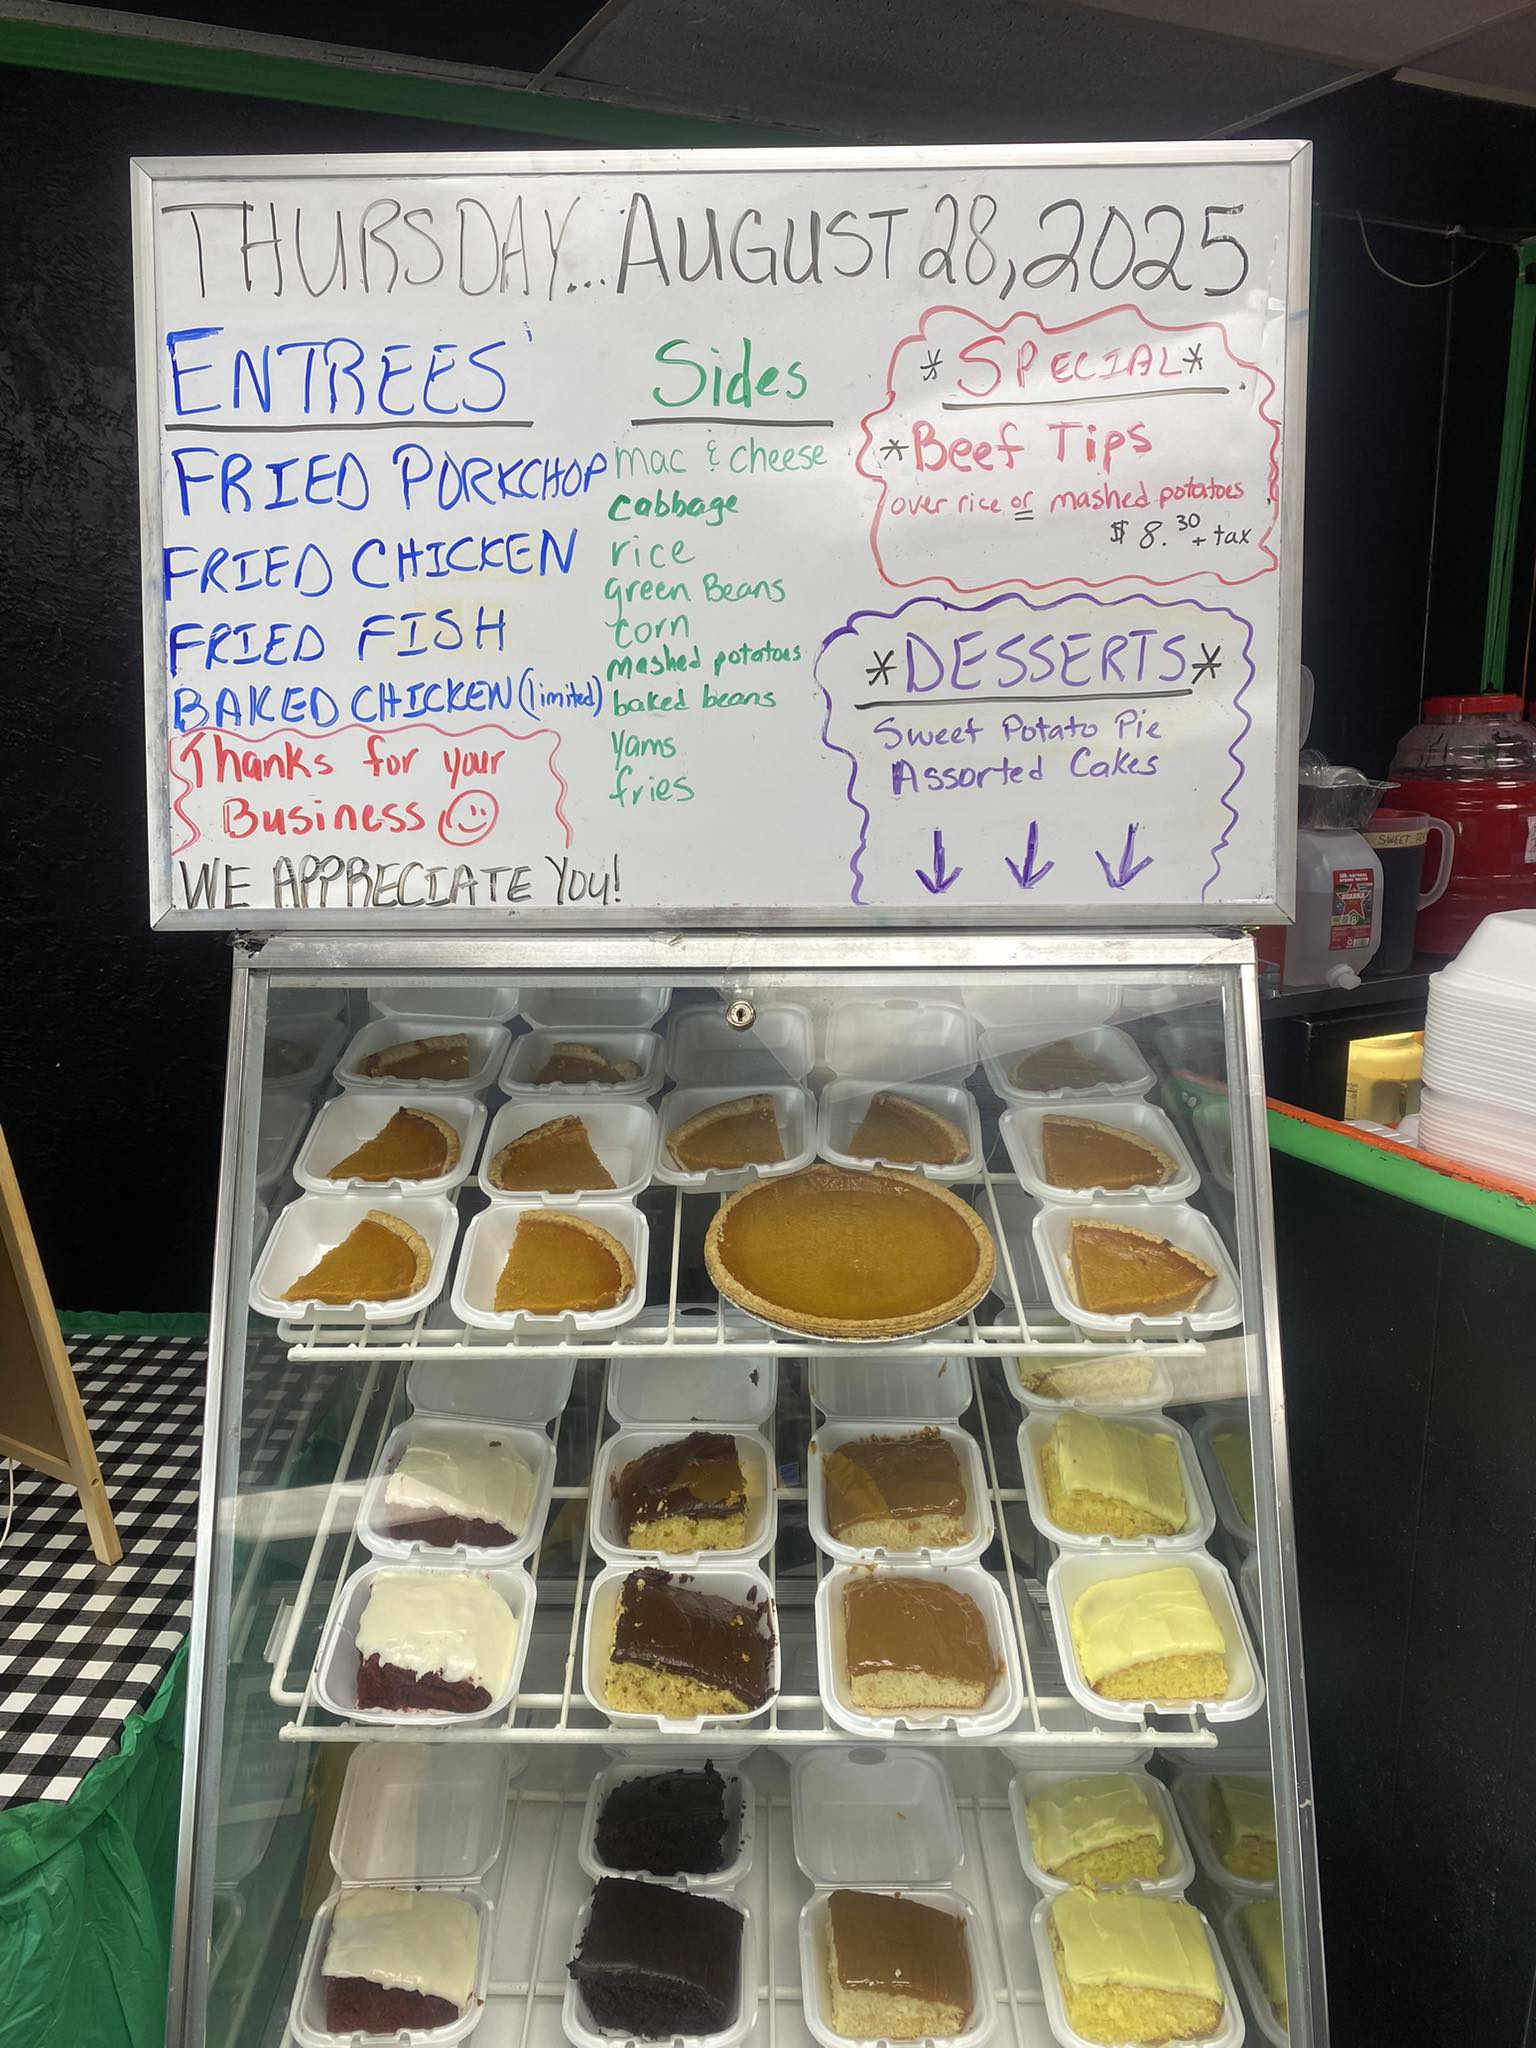 THURSDAY... AUGUST 28, 2025
ENTREES'
FRIED PORKCHOP
FRIED CHICKEN
FRIED FISH
BAKED CHICKEN (limited)
Thanks for your
Business
WE APPRECIATE YOU!
Sides
mac & cheese
cabbage
rice
green Beans
corn
mashed potatoes
baked beans
yams
fries
* SPECIAL *
* Beef Tips
over rice or mashed potatoes
$ 8.30 + tax
* DESSERTS *
Sweet Potato Pie
Assorted Cakes
SWEET TEA
OZARKA